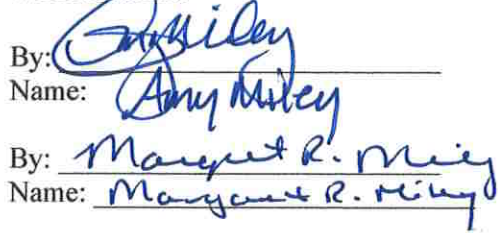 By: Amy Miley
Name: Amy Miley
By: Margaret R. Miley
Name: Margaret R. Miley